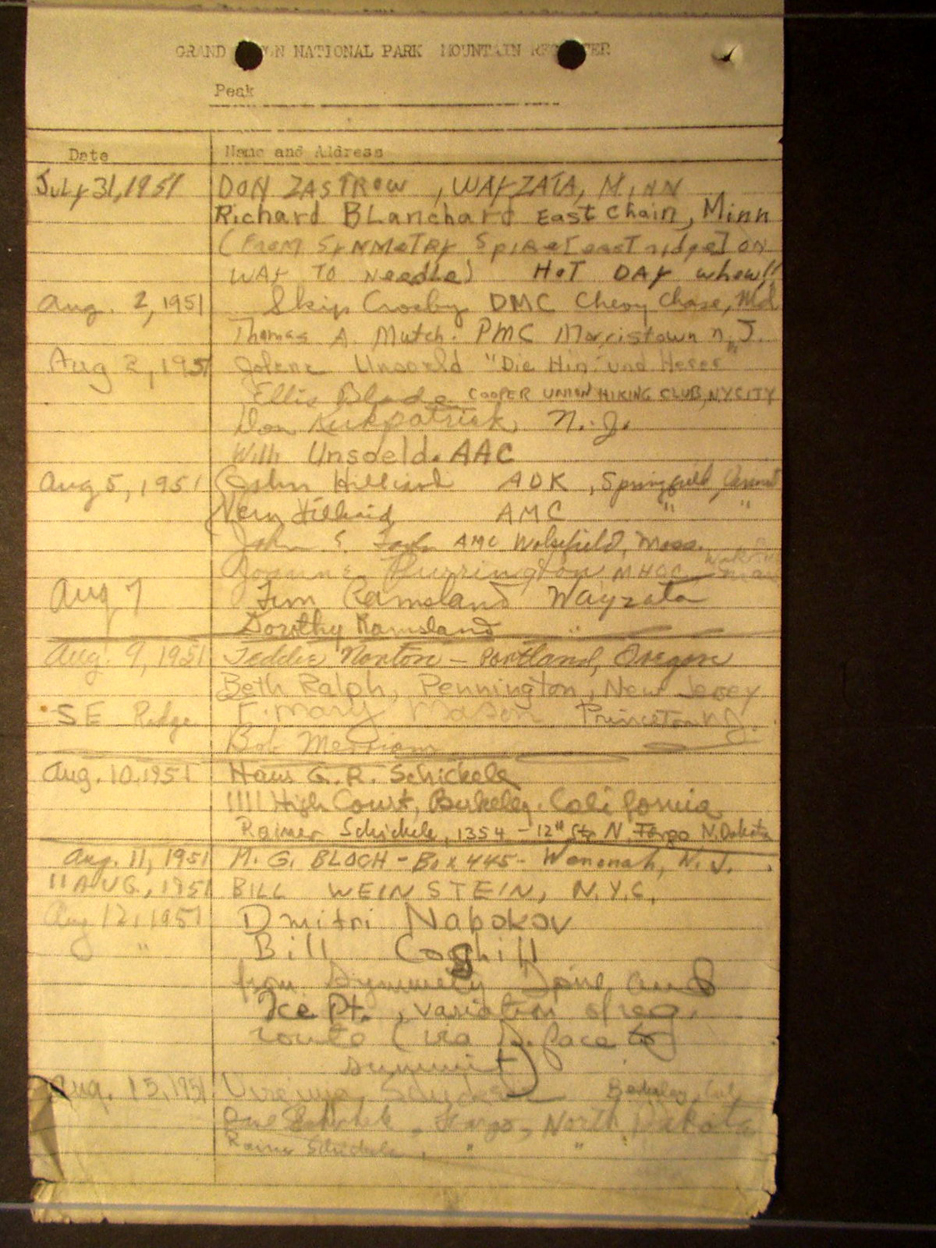 GRAND NATIONAL PARK MOUNTAIN
Peak
Date Name and Address
July 31, 1951 DON ZASTROW, WAYZATA, MINN
Richard BLanchard East Chain, Minn
(FROM SYMMETRY Spire [east ridge] ON
WAY TO Needle) HOT DAY whew!!
Aug. 2, 1951 Skip Crosby DMC Chevy Chase, Md
Thomas A. Mutch. PMC Morristown N.J.
Aug 2, 1951 Jolene Unsoeld "Die Hin und Herer"
Ellis Blade COOPER UNION HIKING CLUB, N.Y. CITY
Don Kirkpatrick N.J.
Willi Unsoeld. AAC
Aug 5, 1951 John Hilliard ADK, Springfield,
Hilliard AMC " "
John S. AMC Mass.
Joanne Purrington MHOC
Aug 7 Jim Ramsland Wayzata
Dorothy Ramsland "
Aug. 9, 1951 Teddie Norton – Portland, Oregon
Beth Ralph, Pennington, New Jersey
SE Ridge F. Mary Mason Princeton N.J.
Bob Merriam
Aug. 10, 1951 Hans G. R. Schickele
1111 High Court, Berkeley. California
Rainer Schickele, 1354 - 12th St N, Fargo N. Dakota
Aug. 11, 1951 M. G. BLOCH - Box 445 - Wenonah, N.J.
11 AUG., 1951 BILL WEINSTEIN, N.Y.C.
Aug 12, 1951 Dmitri Nabokov
" Bill Coghill
from Symmetry Spire and
Ice Pt., variation of reg.
route (via S. face to
summit)
Aug. 15, 1951 Berkeley, Cal.
Schickele, Fargo, North Dakota
Rainer Schickele, " " "